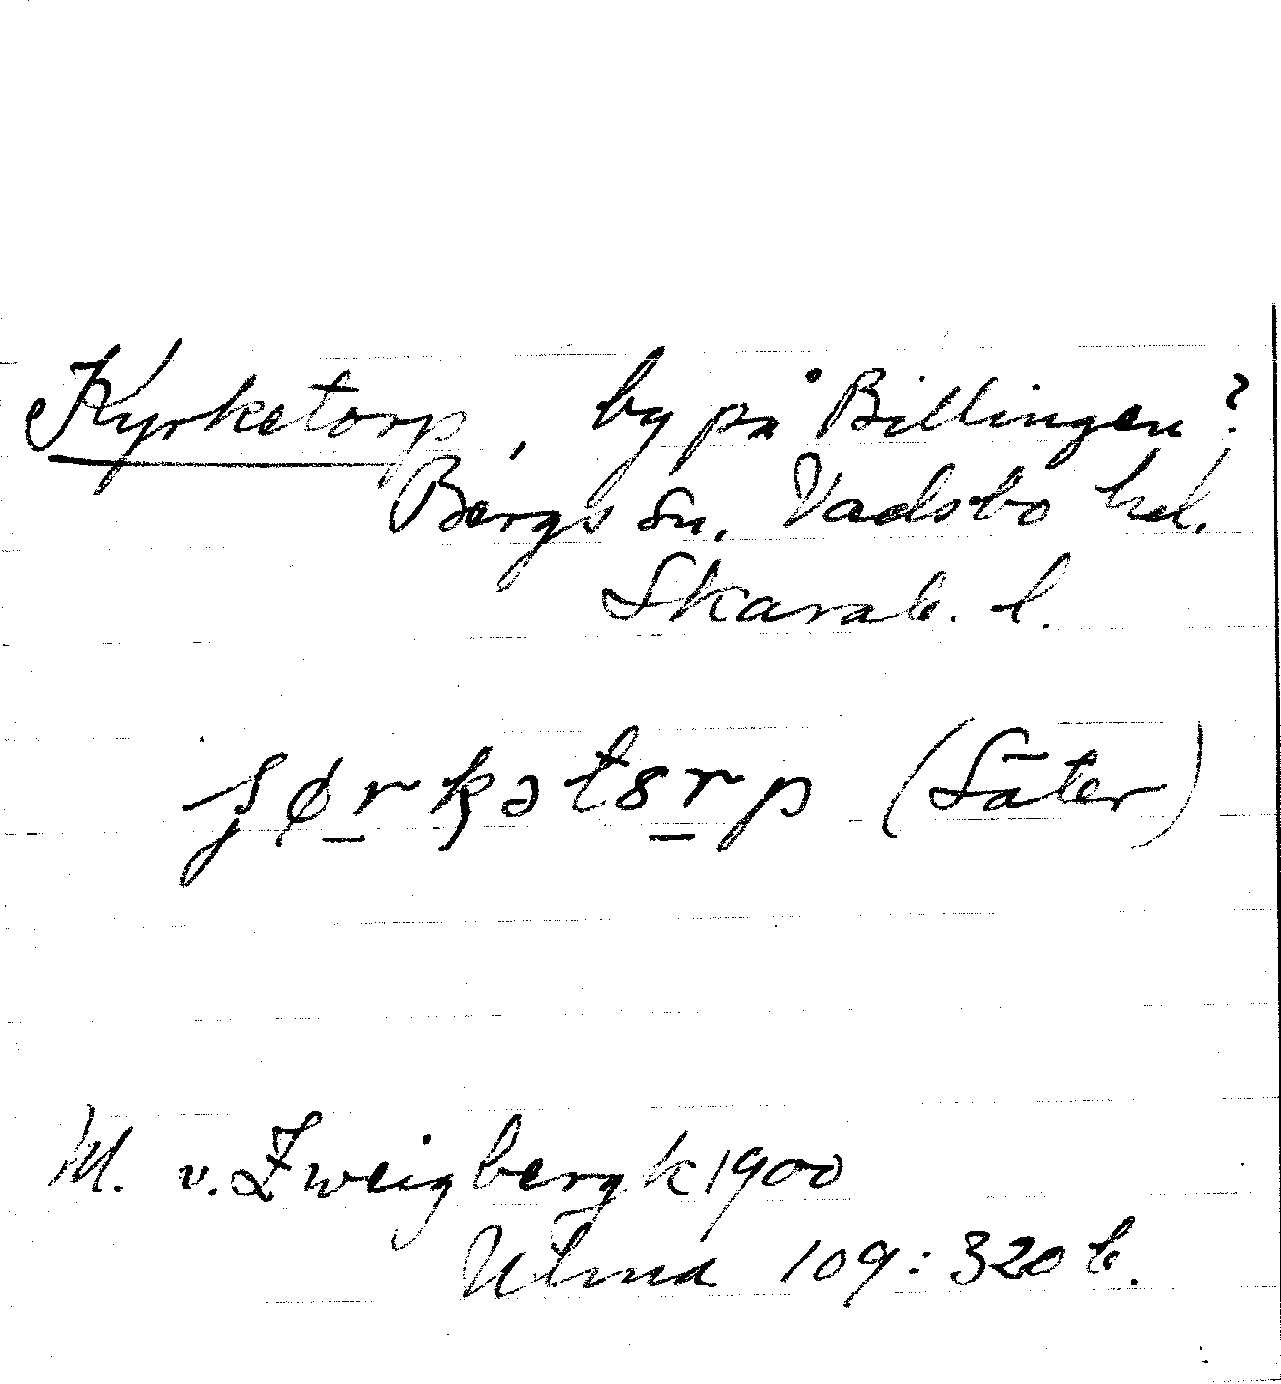 Kyrketorp, by på Billingen?
Bergs sn. Vadsbo hd.
Skarab. l.
(Säter)
M. v. Zweigbergk 1900
Ulma 109:320 b.